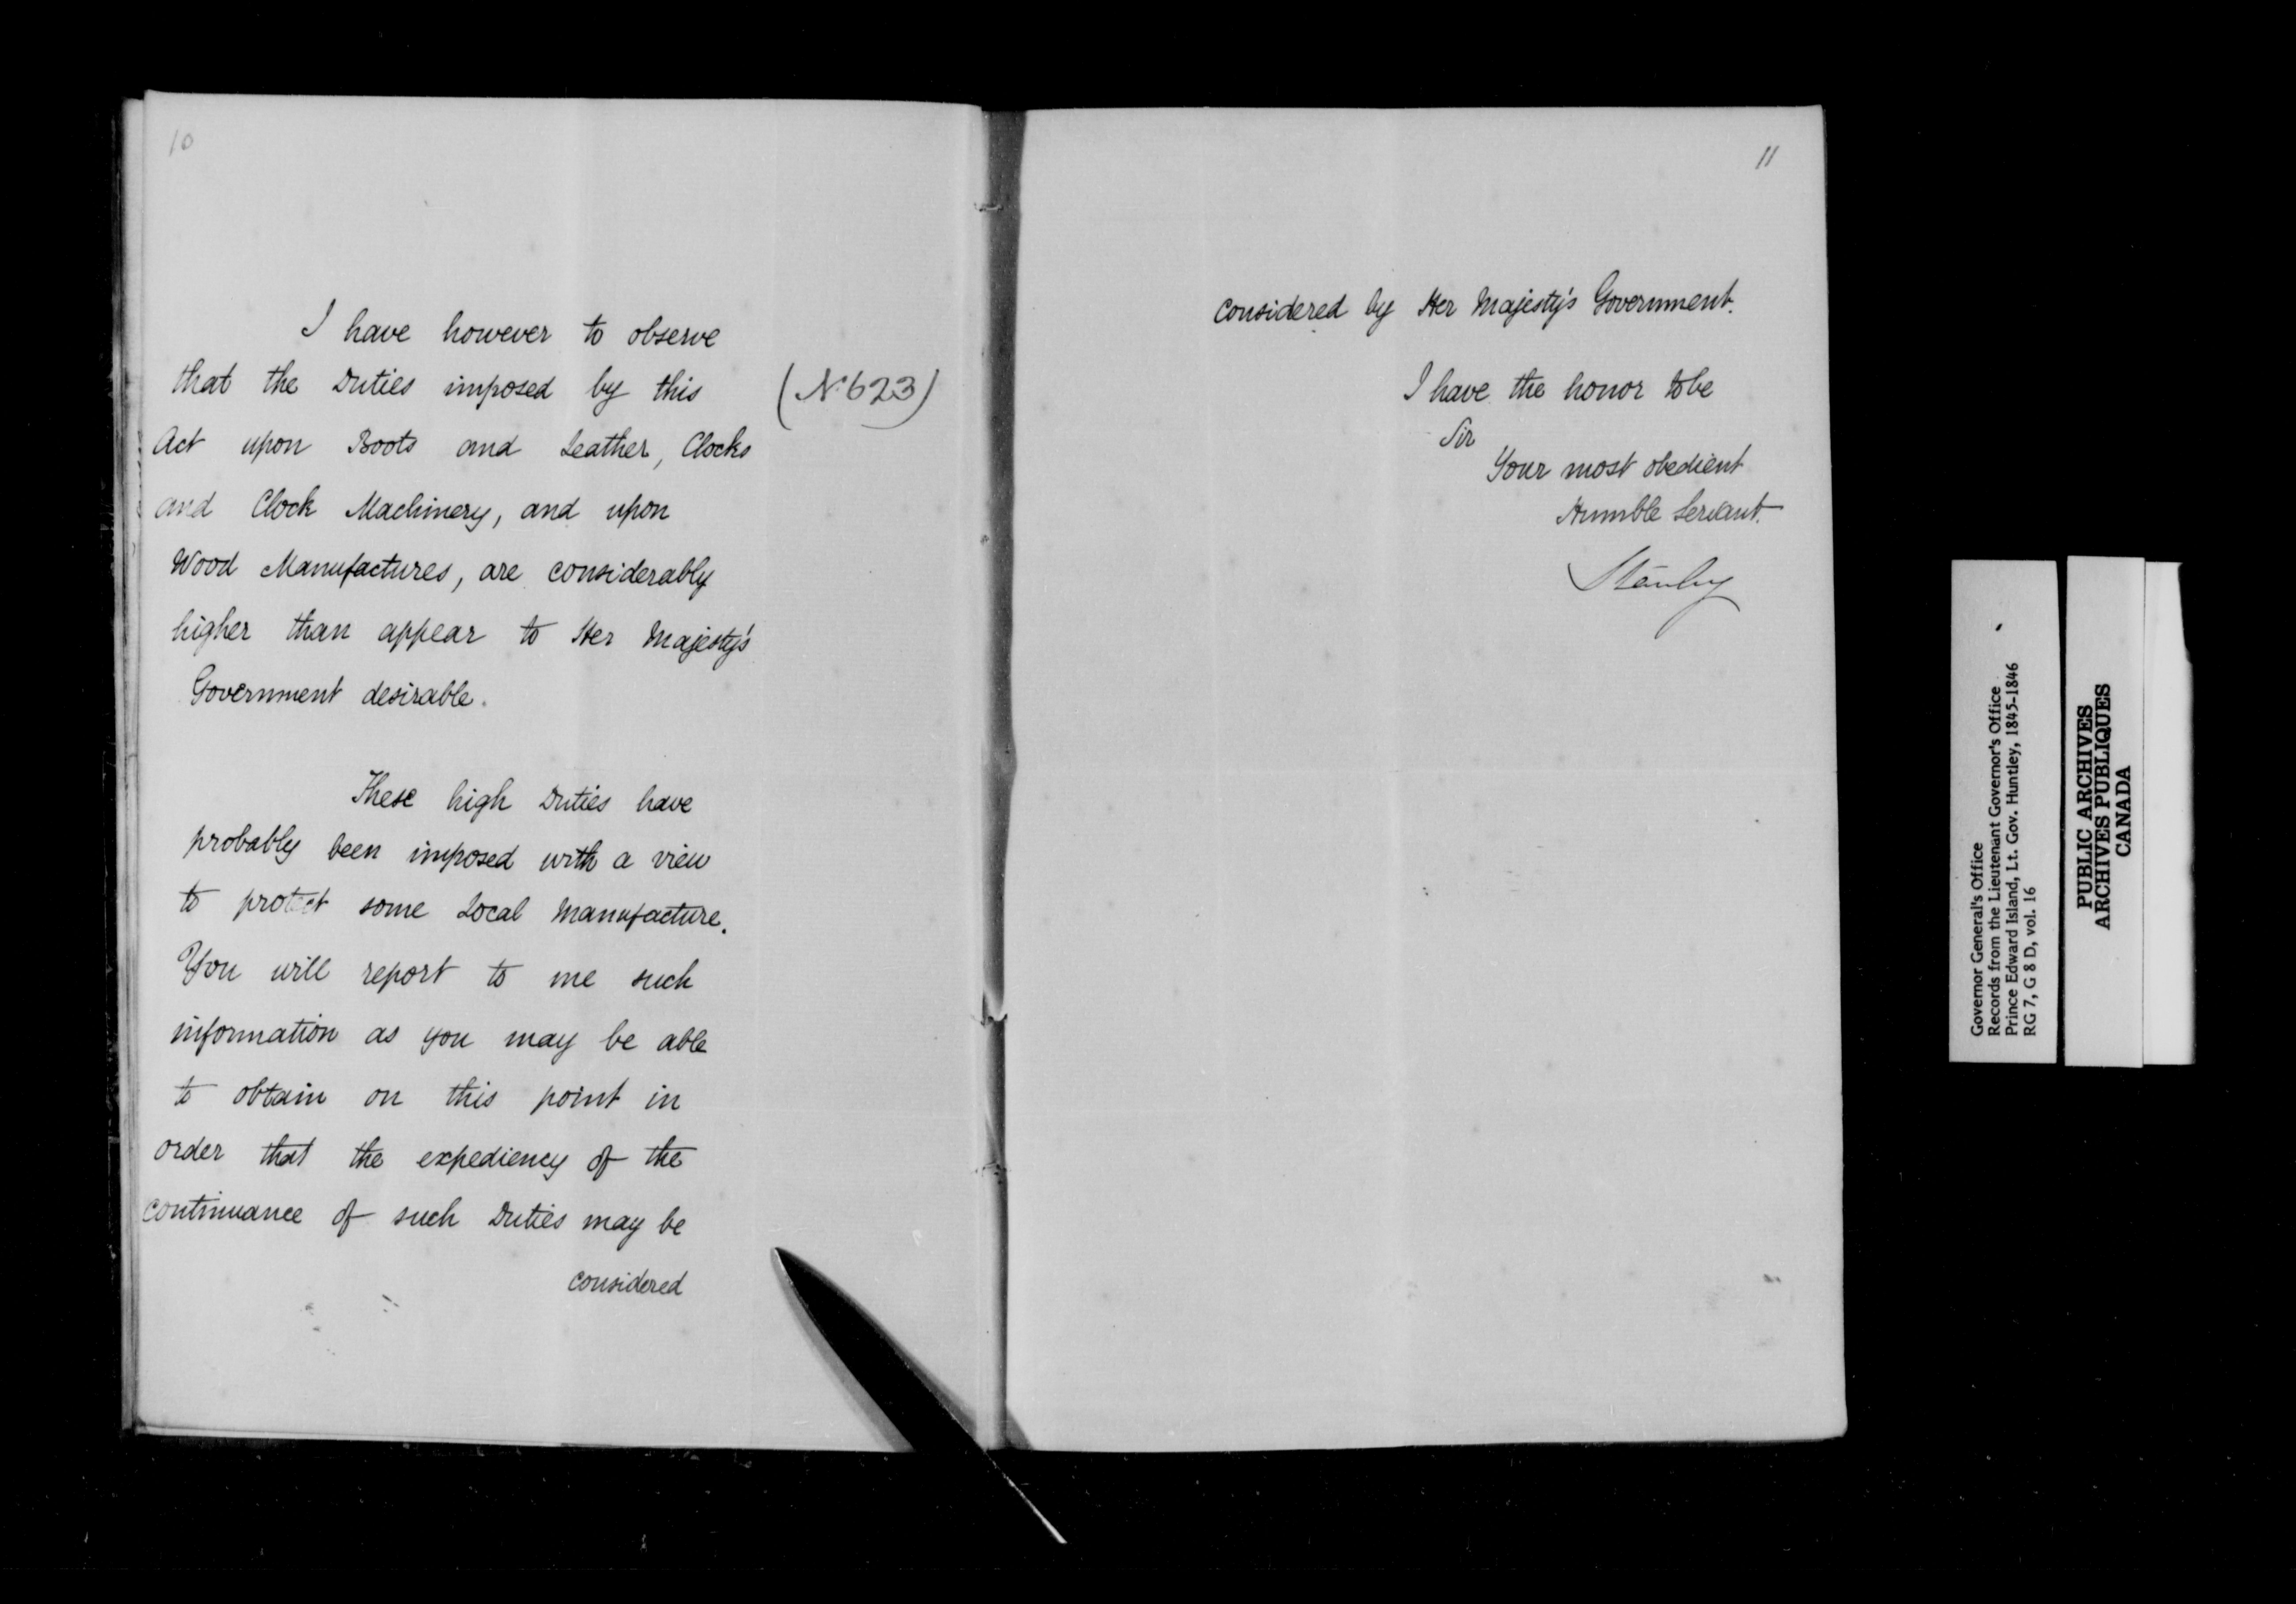 10
I have however to observe
that the Duties imposed by this
(No 623)
Act upon Boots and Leather, Clocks
and Clock Machinery, and upon
Wood Manufactures, are considerably
higher than appear to Her Majesty's
Government desirable.
These high Duties have
probably been imposed with a view
to protect some Local Manufacture.
You will report to me such
information as you may be able
to obtain on this point in
order that the expediency of the
continuance of such Duties may be
considered
11
considered by Her Majesty's Government.
I have the honor to be
Sir
Your most obedient
Humble Servant.
Stanley
Governor General's Office
Records from the Lieutenant Governor's Office
Prince Edward Island, Lt. Gov. Huntley, 1845-1846
RG 7, G 8 D, vol. 16
PUBLIC ARCHIVES
ARCHIVES PUBLIQUES
CANADA